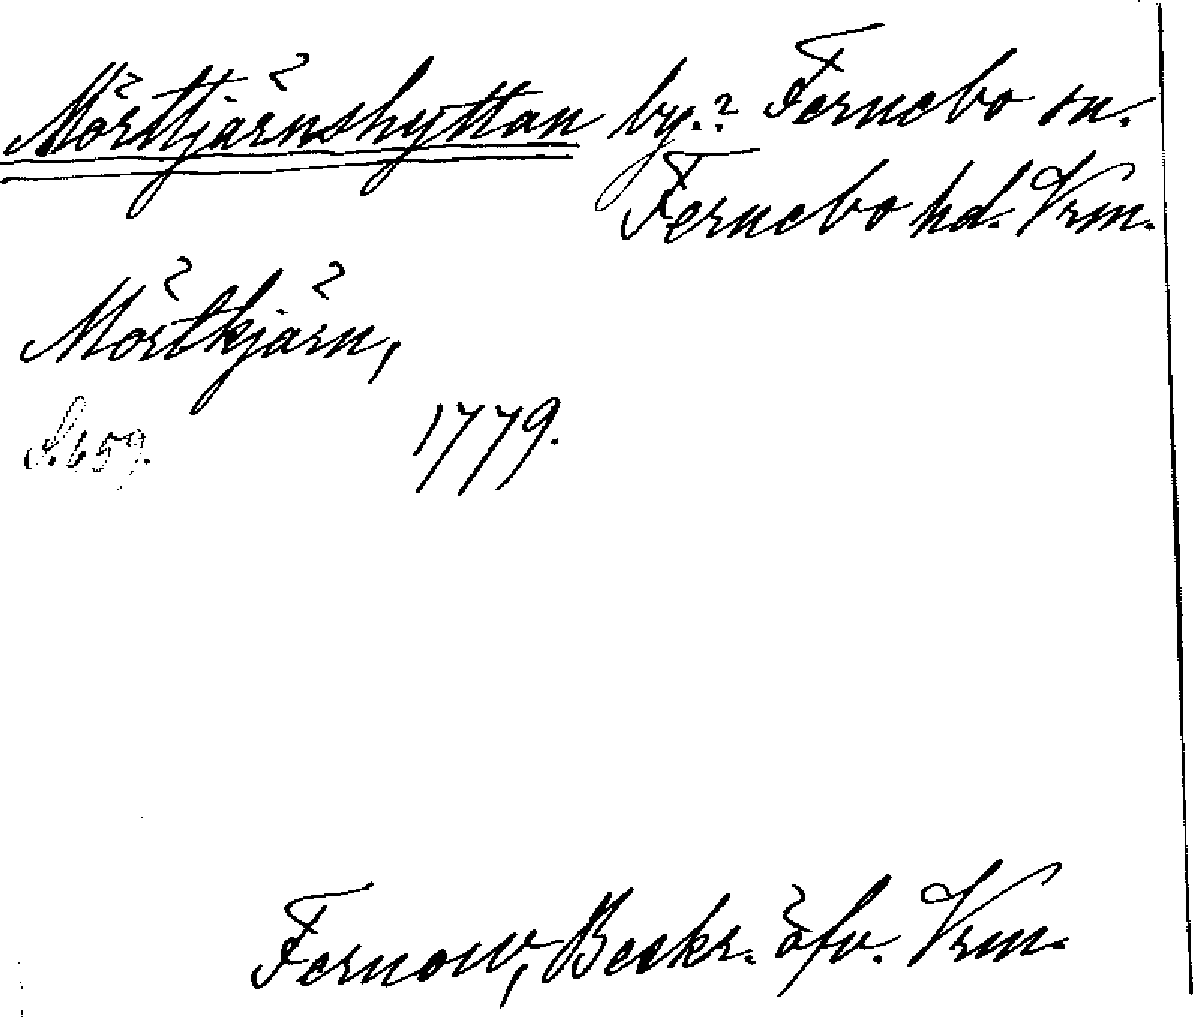 Mörttjärnshyttan by.? Fernebo sn.
Fernebo hd. Vrm.
Mörtkjärn,
S. 659. 1779.
Fernow, Beskr. öfv. Vrm.